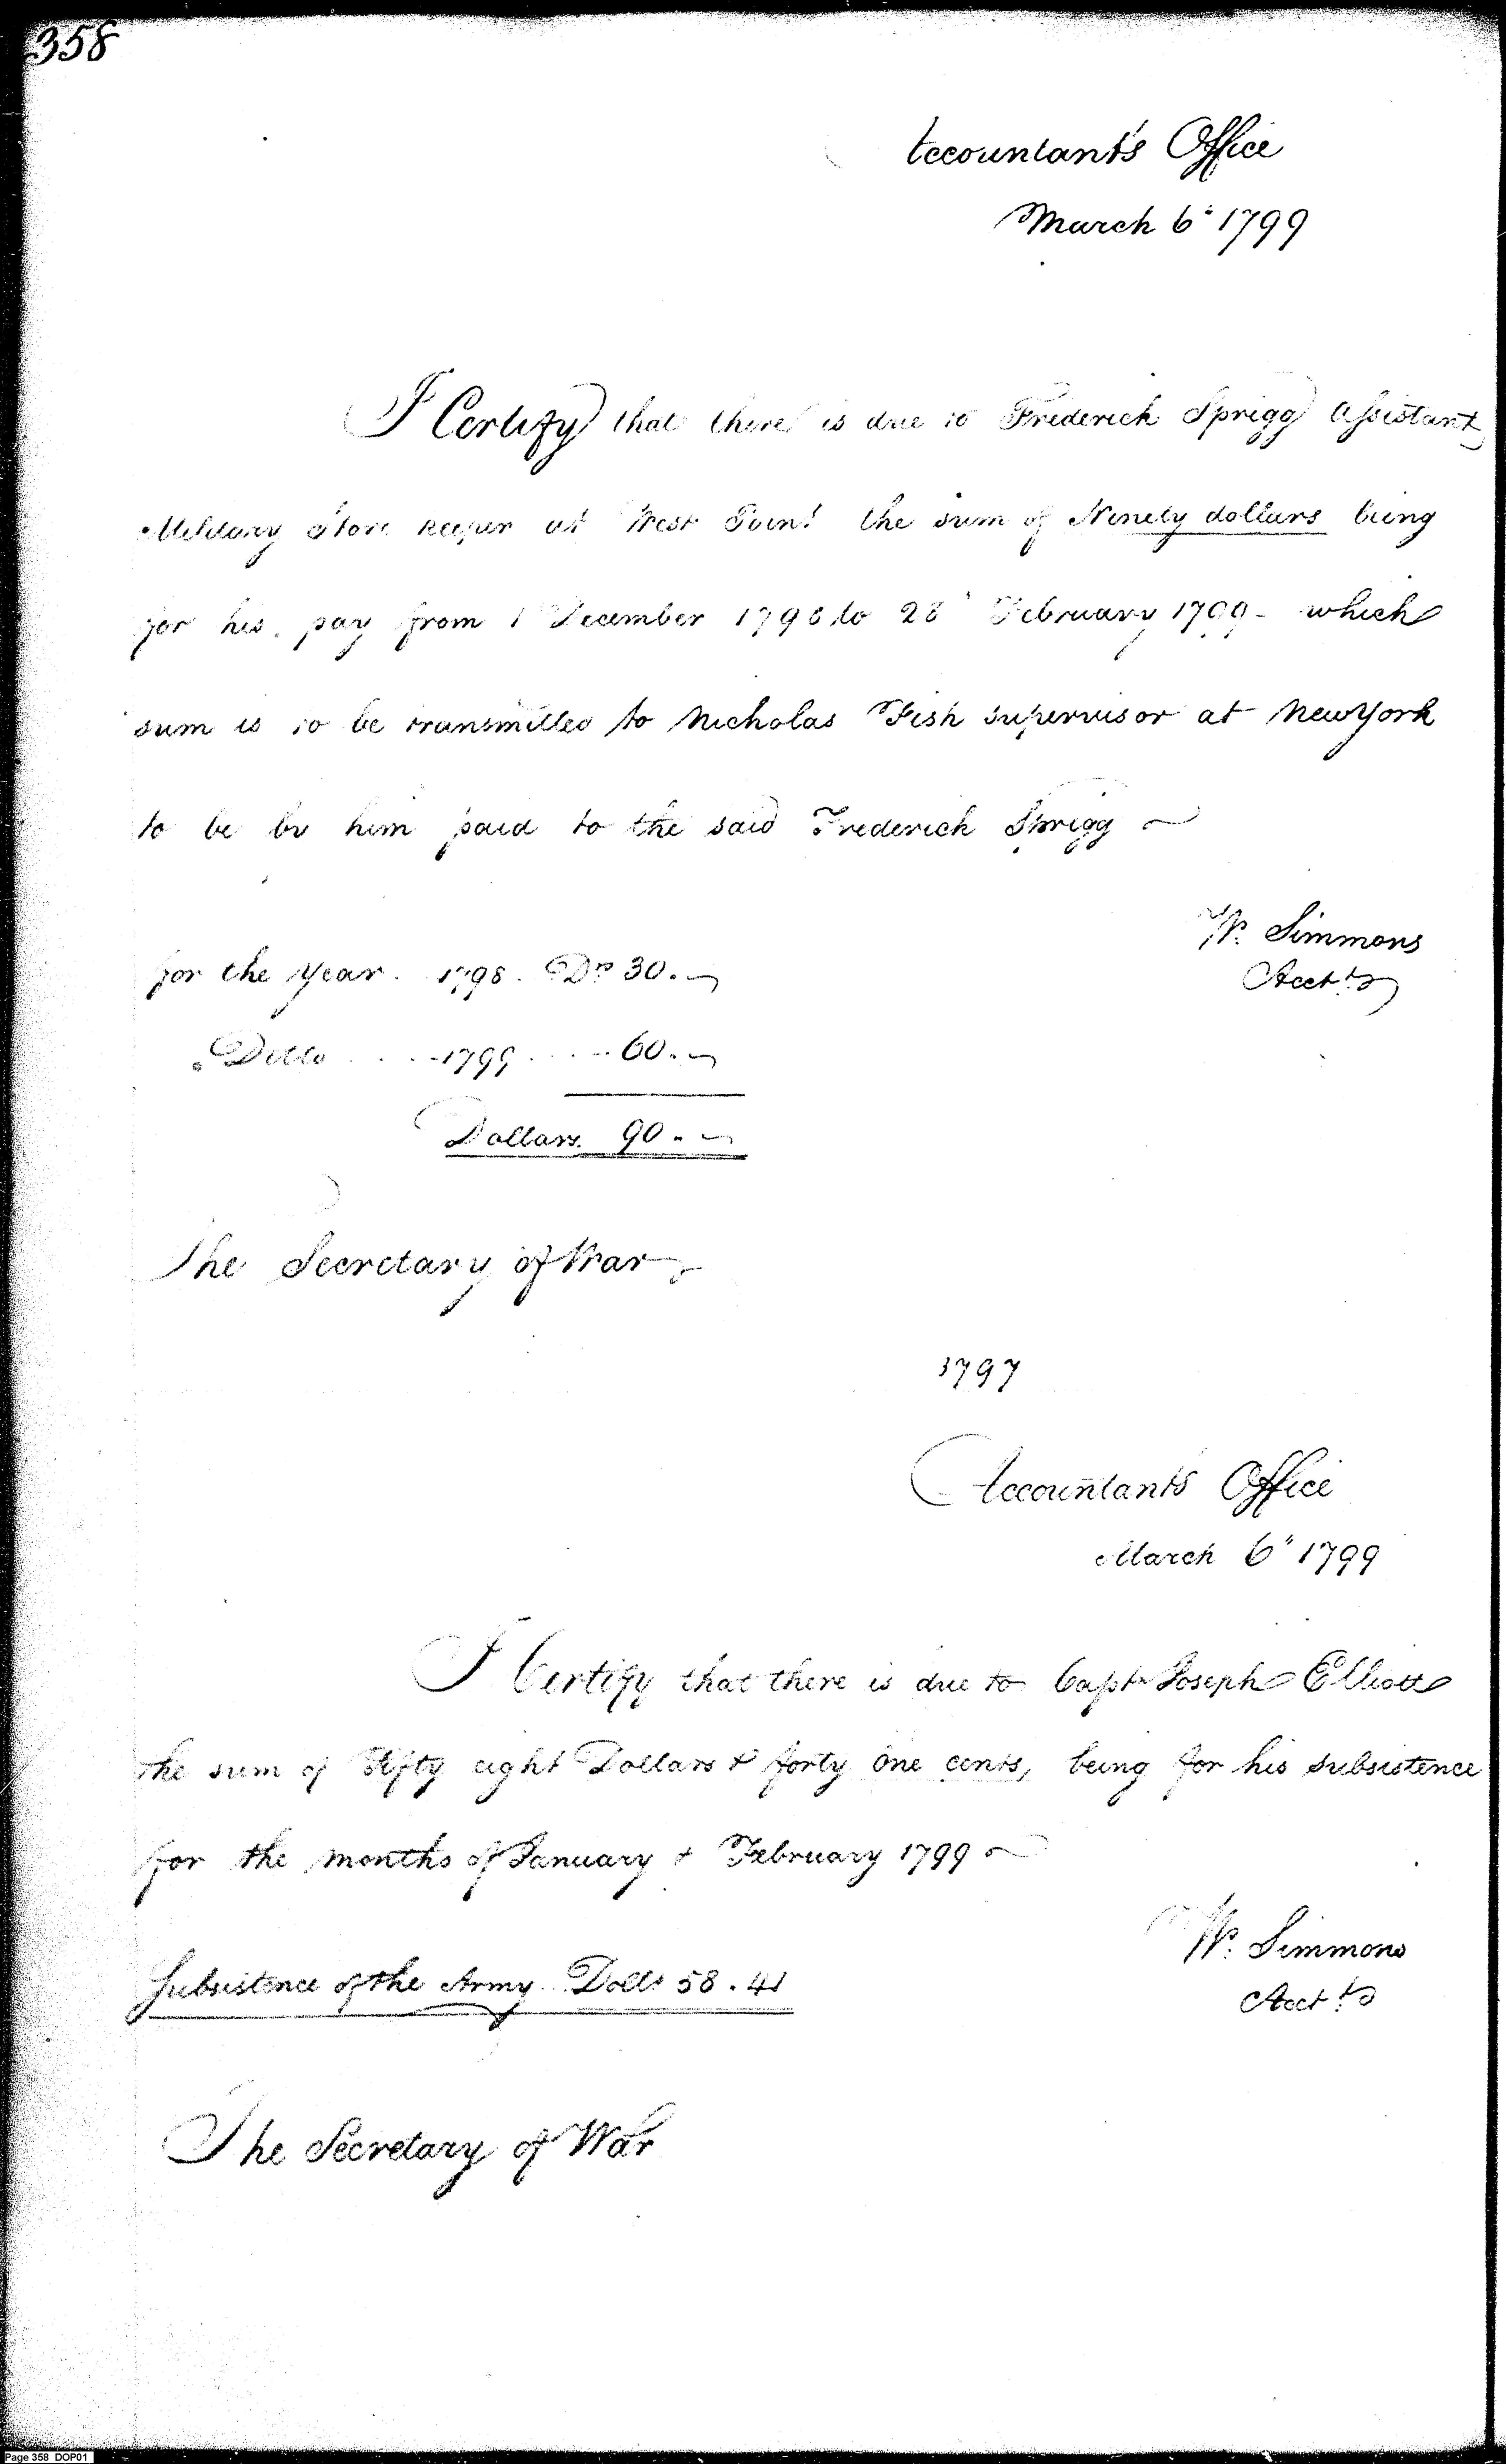 358
Accountant's Office
March 6th 1799
I Certify that there is due to Frederick Sprigg Assistant
Military Store keeper at West Point the sum of Ninety dollars being
for his pay from 1 December 1798 to 28 February 1799 - which
sum is to be transmitted to Nicholas Fish supervisor at New York
to be by him paid to the said Frederick Sprigg
W. Simmons
Acct.t
for the Year. 1798. Do 30.
Ditto .... 1799 .... 60.
Dollars. 90.
The Secretary of War
3797
Accountants Office
March 6" 1799
I Certify that there is due to Capt Joseph Elliott
the sum of Fifty eight Dollars & forty one cents, being for his subsistence
for the months of January & February 1799
W. Simmons
Acct.t
Subsistence of the Army.. Dolls 58.41
The Secretary of War
Page 358 DOP01